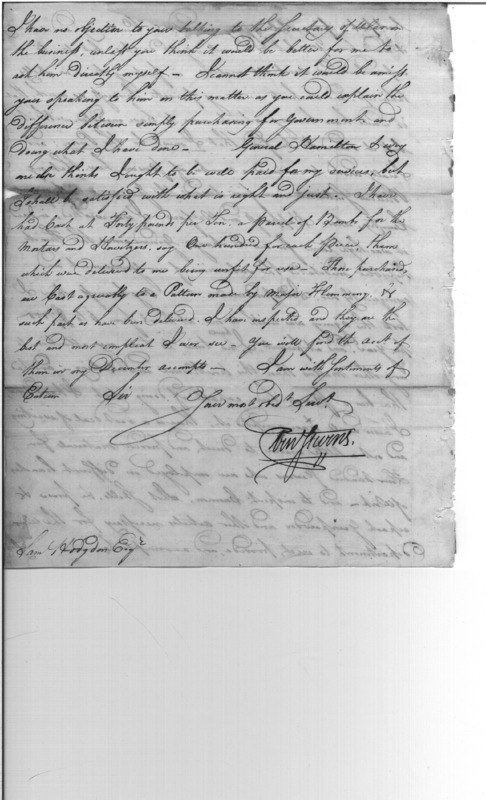 I have no objection to your talking to the Secretary of War on
the business, unless you think it would be better for me to
ask him directly myself – I cannot think it would be amiss
you speaking to him on this matter as you could explain the
Difference between simply purchasing for Government and
doing what I have done – General Hamilton & every
one else thinks I ought to be well paid for my services, but
I shall be satisfied with what is right and just. I have
had Cast at Forty pounds per Ton, a parcel of Bomb for the
Mortars and Howitzers, say One hundred for each Piece, them
which was delivered to me being unfit for use – Those purchased,
are Cast agreeably to a Pattern made by Major Flemming, &
such part as have been delivered, I have inspected and they are the
best and most compleat I ever see – You will find the acct of
them in my December accompts – I am with Sentiments of
Esteem Sir
Your most obdt Servt
Eben Stevens.
Saml Hodgdon Esqr